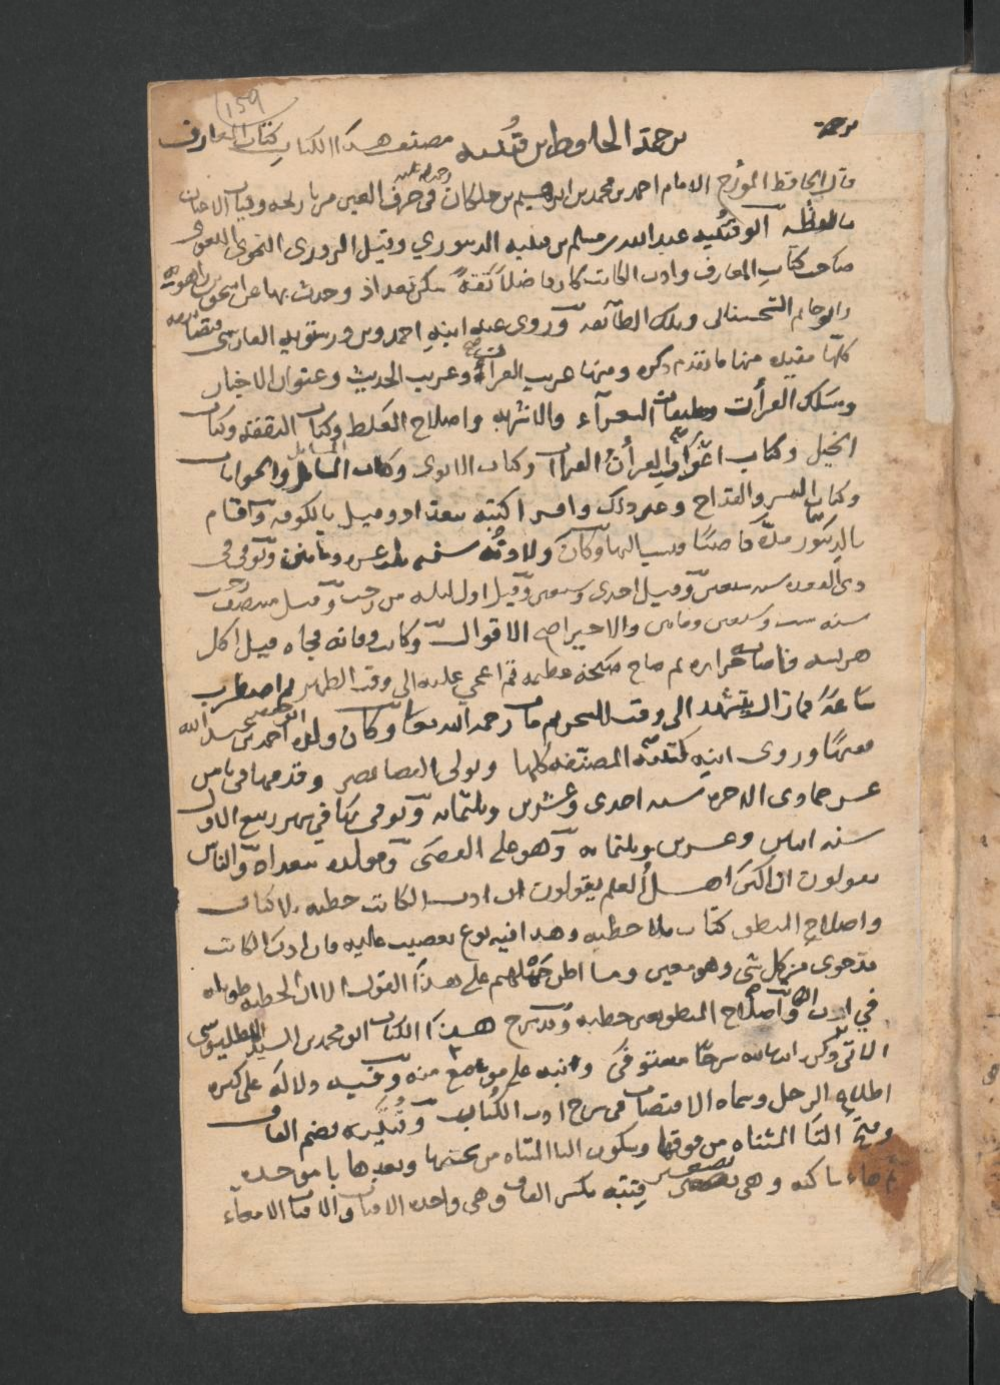 159
ترجمة
ترجمة الحافظ بن قتيبه مصنف هذا الكتاب كتاب المعارف
قال الحافظ المؤرخ الامام احمد بن محمد بن ابراهيم بن خلكان رحمه الله في حرف العين من تاريخه وفيات الاعيان
ما لفظه ابو قتيبه عبد الله بن مسلم بن قتيبه الدينوري وقيل المروزي النحوي اللغوي
صاحب كتاب المعارف وادب الكاتب كان فاضلا ثقة سكن بغداد وحدث بها عن اسحق بن راهويه
وابو حاتم السجستاني وتلك الطبقه وروى عنه ابنه احمد وبن درستويه الفارسي وتصانيفه
كلها مفيده منها ما تقدم ذكره ومنها غريب القرآن وغريب الحديث وعيون الاخبار
ومشكل القرآن وطبقات الشعرآء والاشربه واصلاح الغلط وكتاب التفقيه وكتاب
الخيل وكتاب اعراب القرآن وكتاب الانوا وكتاب المسائل والجوابات
وكتاب الميسر والقداح وغير ذلك واقرا كتبه ببغداد وقيل بالكوفه واقام
بالدينور مدة قاضيا فنسب اليها وكان ولادته سنه ثلاث عشره ومأتين وتوفي في
ذي القعده سنه سبعين وقيل احدى وسبعين وقيل اول ليله من رجب وقيل منتصف رجب
سنه ست وسبعين ومأتين والاخير اصح الاقوال وكانت وفاته فجاه قيل اكل
هريسه فاصابه حراره ثم صاح صيحة عظيمه ثم اغمي عليه الى وقت الظهر ثم اضطرب
ساعة فما زال يتشهد الى وقت السحر ثم مات رحمه الله تعا وكان ولده احمد بن عبد الله
فقيها وروى ابنه كتبه المصنفه كلها وتولى القضا بمصر وقدمها في ثامن
عشر جمادى الاخره سنه احدى وعشرين وثلثمائه وتوفي بها في شهر ربيع الاول
سنه اثنين وعشرين وثلثمايه وهو على القضى ومولده ببغداد والناس
يقولون ان اكثر اهل العلم يقولون ان ادب الكاتب خطبه بلا كتاب
واصلاح المنطق كتاب بلا خطبه وهذا فيه نوع تعصب عليه فان ادب الكاتب
قد حوى من كل شي وهو مفنن وما اظن حملهم على هذا القول الا ان الخطبه طويله
في ادب الكاتب واصلاح المنطق بغير خطبه وقد شرح هذا الكتاب ابو محمد بن السيد البطليوسي
الاتي ذكره ان شا الله شرحا مستوفى ونبه على مواضع منه وفيه دلالة على كثره
اطلاع الرجل وسماه الاقتضاب في شرح ادب الكتاب وقتيبه بضم القاف
وفتح التا المثناه من فوقها وسكون اليا المثناه من تحتها وبعدها با موحده
ثم هاء ساكنه وهي تصغير قتبه بكسر القاف وهي واحده الاقتاب والاقتاب الامعاء